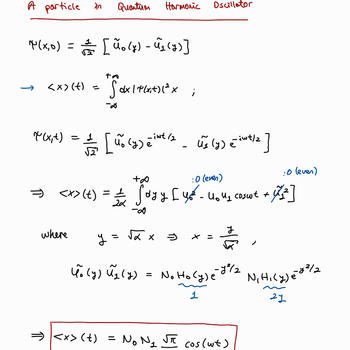 A particle in Quantum Harmonic Oscillator
Ψ(x,0) = 1/√2 [ũ₀(y) - ũ₁(y)]
→ <x>(t) = ∫_{-∞}^{+∞} dx |Ψ(x,t)|² x ;
Ψ(x,t) = 1/√2 [ũ₀(y) e^{-iωt/2} - ũ₁(y) e^{-iωt/2}]
:0 (even) :0 (even)
⇒ <x>(t) = 1/2α ∫_{-∞}^{+∞} dy y [ũ₀² - u₀ u₁ cosωt + ũ₁²]
where y = √α x ⇒ x = y/√α ,
ũ₀(y) ũ₁(y) = N₀ H₀(y) e^{-y²/2} N₁ H₁(y) e^{-y²/2}
1 2y
⇒ <x>(t) = N₀ N₁ √π cos(ωt)